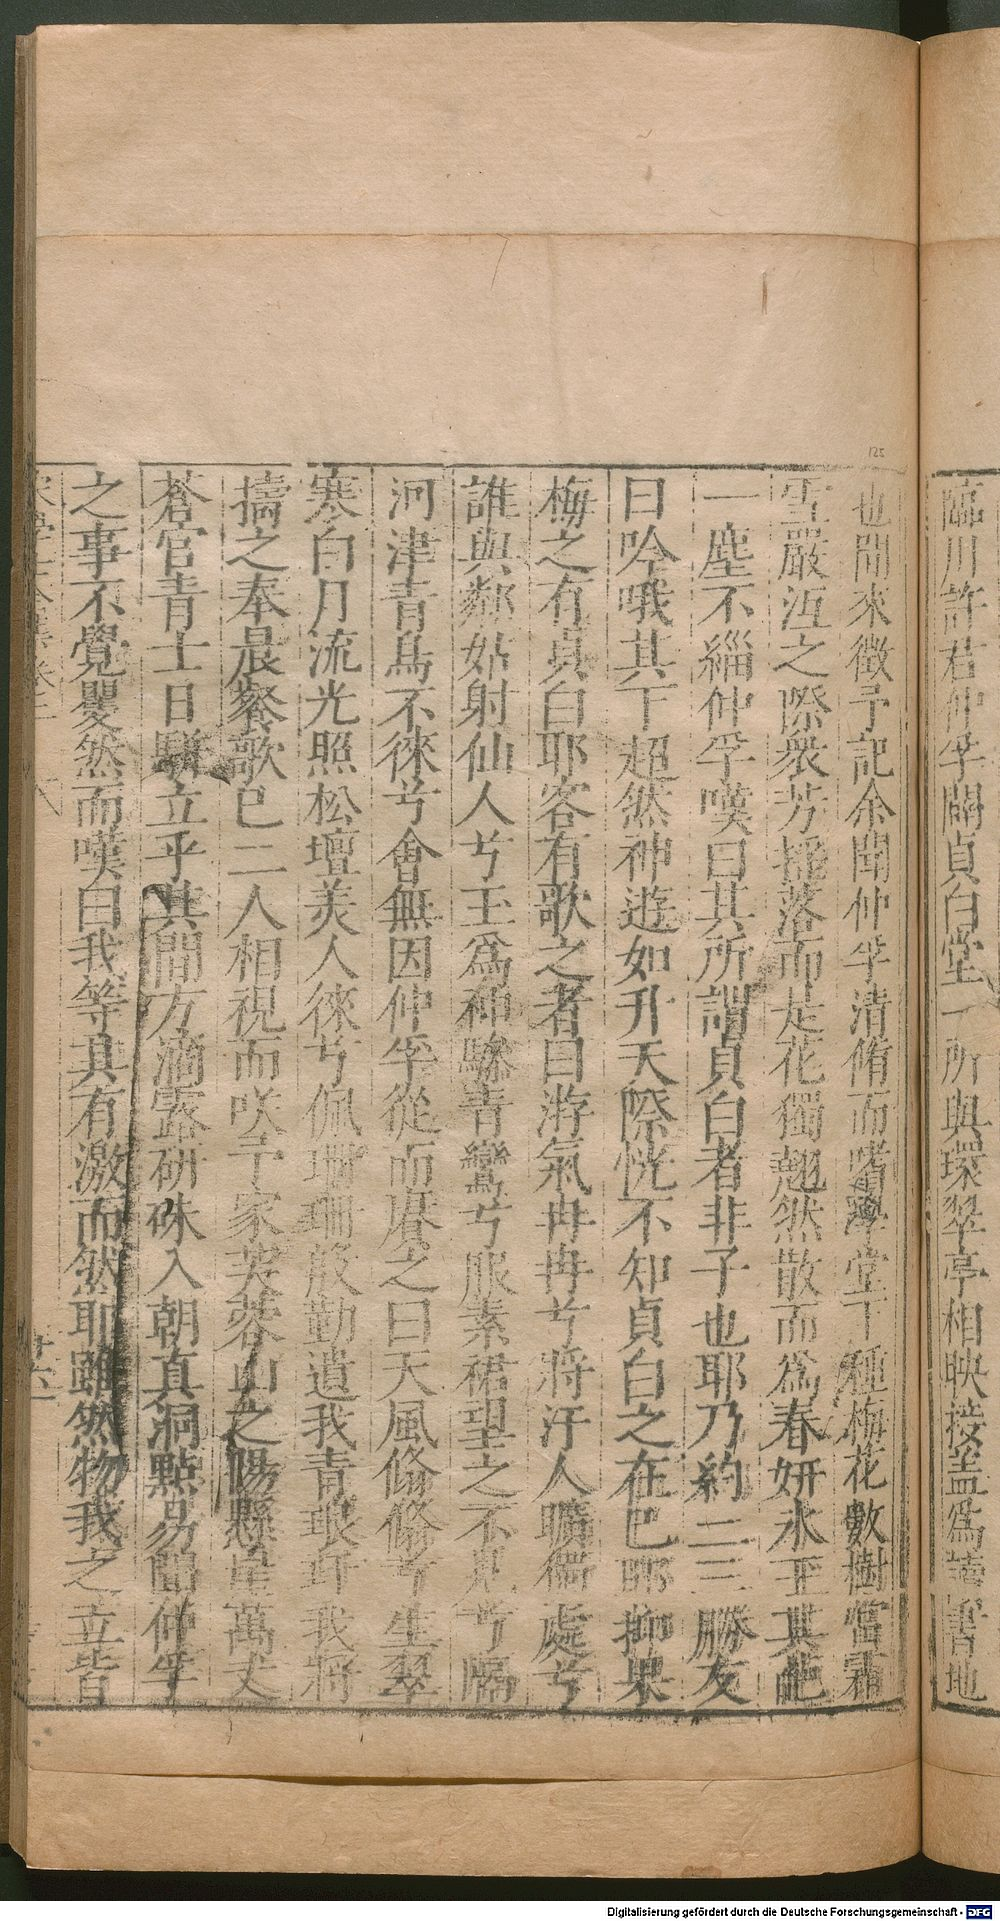 臨川許君仲孚闢貞白堂一所與環翠亭相映接蓋爲讀書地
也間來徵予記余聞仲孚清脩而嗜學堂下種梅花數樹當霜
雪嚴沍之際衆芳摧落而是花獨翹然散而爲春妍氷玉其葩
一塵不緇仲孚嘆曰其所謂貞白者非子也耶乃約二三勝友
日吟哦其下超然神遊如升天際恍不知貞白之在己耶抑果
梅之有貞白耶客有歌之者曰游氣冉冉兮將汙人曠獨處兮
誰與鄰姑射仙人兮玉爲神驂青鸞兮服素裙望之不見兮隔
河津青鳥不徠兮會無因仲孚從而賡之曰天風翛翛兮生翠
寒白月流光照松壇美人徠兮佩珊珊殷勤遺我青琅玕我將
擣之奉晨餐歌已二人相視而咲予家芙蓉山之陽懸崖萬丈
蒼官青士日駢立乎其間方滴露研硃入朝真洞點易聞仲孚
之事不覺矍然而嘆曰我等其有激而然耶雖然物我之立皆
宋學士文集卷
廿六
125
Digitalisierung gefördert durch die Deutsche Forschungsgemeinschaft - DFG